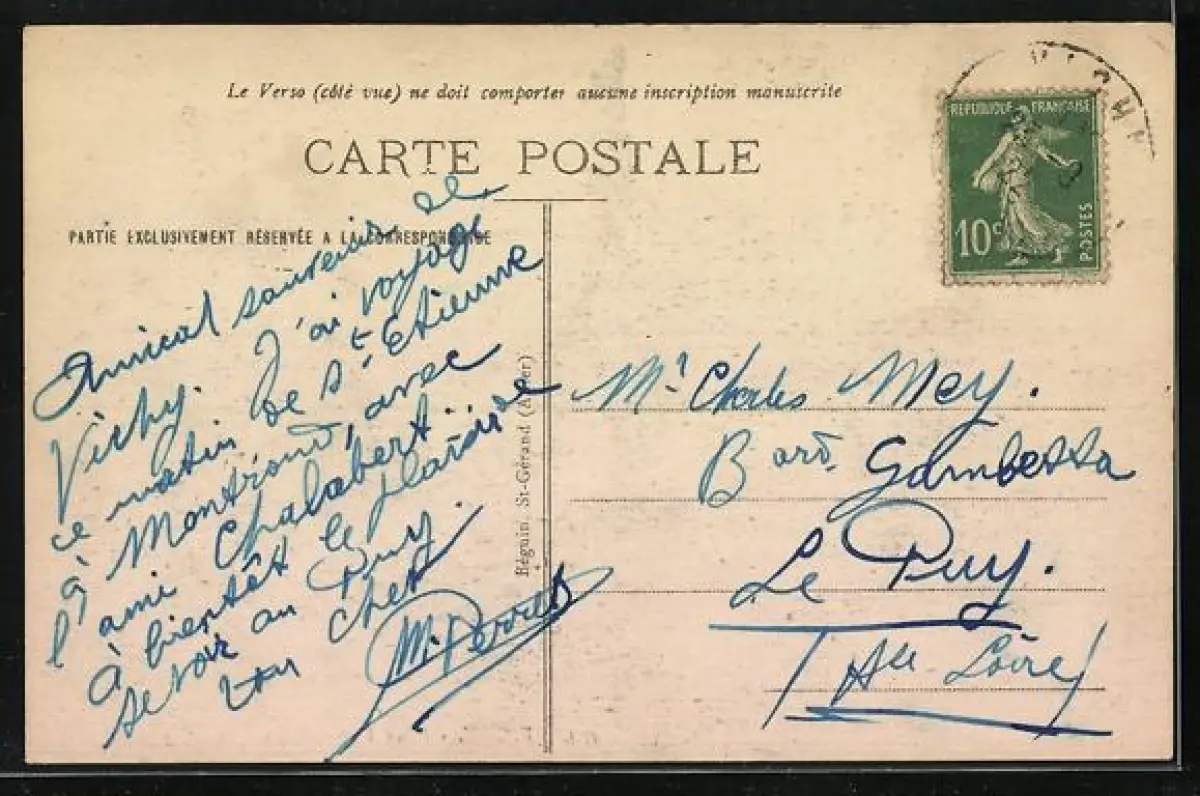 Le Verso (côté vue) ne doit comporter aucune inscription manuscrite
CARTE POSTALE
PARTIE EXCLUSIVEMENT RÉSERVÉE A LA CORRESPONDANCE
Amical souvenir de
Vichy. J'ai voyagé
ce matin de St Etienne
à Montrond, avec
l'ami Chalabert.
à bientôt le plaisir de
se voir au Puy.
M. Perret
Béguin, St-Gérand
RÉPUBLIQUE FRANÇAISE
10c
POSTES
VICHY
Mr Charles Mey.
Bard. Gambetta
Le Puy.
(Hte Loire)